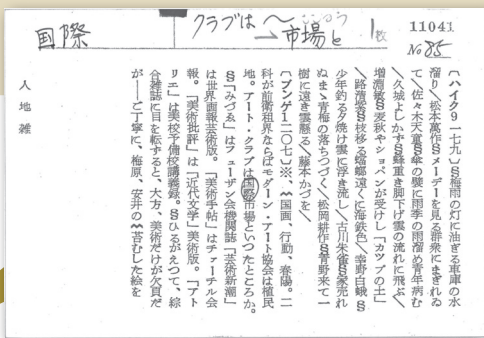 国際
クラブは〜
市場と
1枚
11041
No 85
〔ハイク9 一七九〕§梅雨の灯に油ぎる車庫の水
溜り＼松本萬作§メーデーを見る群衆にまぎれゐ
て＼佐々木天童§傘の襞に雨季の雨溜め青年病む
＼久城よしかず§蜂重き脚下げ雲の流れに飛ぶ＼
増淵敏§麦秋やショパンが受けし「カップの土」
＼路清紫§枝移る蟷螂遠くに海鉄色＼幸野白蛾§
少年釣る夕焼け雲に浮き流し＼古川朱雀§家売れ
ぬまゝ青梅の落ちつづく＼松岡耕作§菅野来て一
樹に遠き雲懸る＼藤本かづを＼
〔ブンゲ1二〇七〕※、〽国画、行動、春陽。二
科が前衛租界ならばモダーン・アート協会は植民
地。アート・クラブは国際市場といつたところか。
§「みづゑ」はフューザン会機関誌「芸術新潮」
は世界画報芸術版。「美術手帖」はチャーチル会
報。「美術批評」は「近代文学」美術版。「アト
リエ」は美校予備校講義録。§ひるがえつて、綜
合雑誌に目を転すると、大方、美術だけが欠頁だ
が——ご丁寧に、梅原、安井の〽苔むした絵を
人地雑